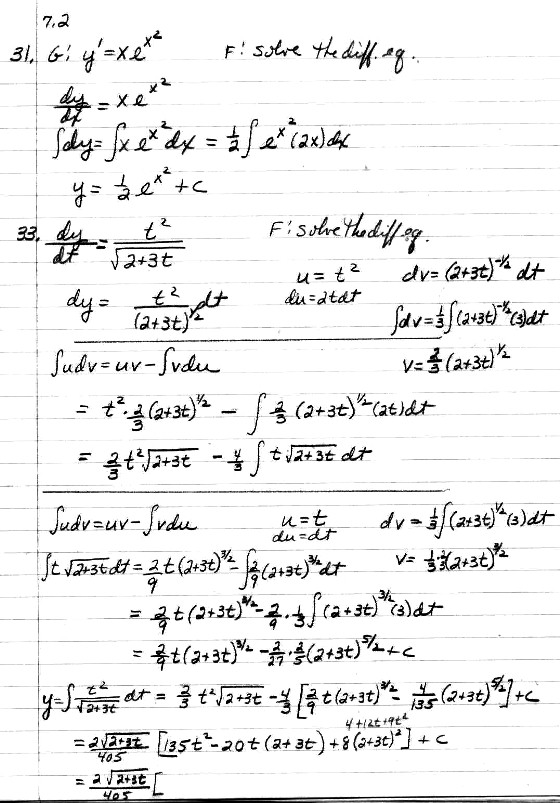 7.2
31. G: y' = xe^{x^2} F: solve the diff. eq.
dy/dx = xe^{x^2}
∫dy = ∫xe^{x^2}dx = 1/2 ∫e^{x^2}(2x)dx
y = 1/2 e^{x^2} + c
33. dy/dt = t^2/√(2+3t) F: solve the diff eq.
u = t^2 dv = (2+3t)^{-1/2} dt
dy = t^2/(2+3t)^{1/2} dt du = 2tdt
∫dv = 1/3 ∫(2+3t)^{-1/2}(3)dt
∫udv = uv - ∫vdu v = 2/3 (2+3t)^{1/2}
= t^2 · 2/3 (2+3t)^{1/2} - ∫ 2/3 (2+3t)^{1/2}(2t)dt
= 2/3 t^2 √(2+3t) - 4/3 ∫ t √(2+3t) dt
∫udv = uv - ∫vdu u = t dv = 1/3 ∫(2+3t)^{1/2}(3)dt
du = dt
∫t √(2+3t) dt = 2/9 t(2+3t)^{3/2} - ∫2/9 (2+3t)^{3/2} dt v = 1/3 · 2/3 (2+3t)^{3/2}
= 2/9 t(2+3t)^{3/2} - 2/9 · 1/3 ∫(2+3t)^{3/2}(3)dt
= 2/9 t(2+3t)^{3/2} - 2/27 · 2/5 (2+3t)^{5/2} + c
y = ∫ t^2/√(2+3t) dt = 2/3 t^2 √(2+3t) - 4/3 [2/9 t(2+3t)^{3/2} - 4/135 (2+3t)^{5/2}] + c
4+12t+9t^2
= 2√(2+3t)/405 [135t^2 - 20t(2+3t) + 8(2+3t)^2] + c
= 2√(2+3t)/405 [